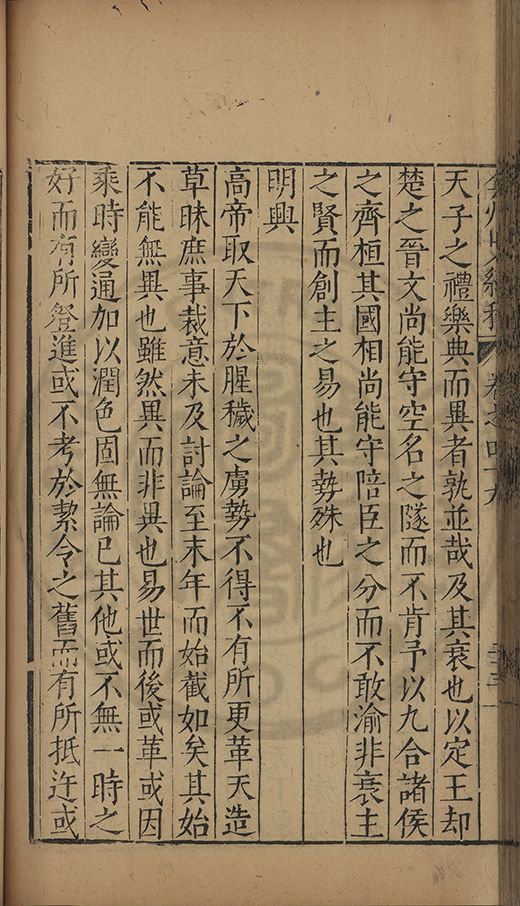 弇州史料 卷之四十九
天子之禮樂典而異者孰並哉及其衰也以定王却
楚之晉文尚能守空名之隧而不肯予以九合諸侯
之齊桓其國相尚能守陪臣之分而不敢渝非衰主
之賢而創主之易也其勢殊也
明興
高帝取天下於腥穢之虜勢不得不有所更革天造
草昧庶事裁意未及討論至末年而始截如矣其始
不能無異也雖然異而非異也易世而後或革或因
乘時變通加以潤色固無論已其他或不無一時之
好而有所登進或不考於絜令之舊而有所抵迕或